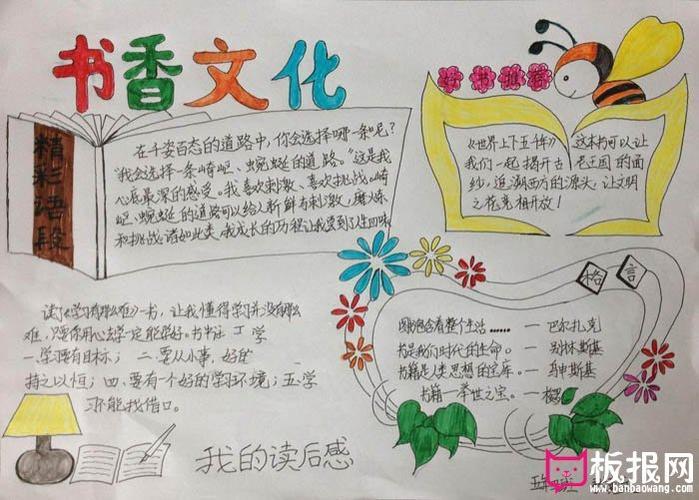 书香文化
精彩语段
在千姿百态的道路中,你会选择哪一条呢?
“我会选择一条崎岖、蜿蜒的道路。”这是我
心底最深的感受。我喜欢刺激、喜欢挑战。崎
岖、蜿蜒的道路可以给人新鲜和刺激,磨炼
和挑战。诸如此类,我成长的历程让我尝到了人生四味
好书推荐
《世界上下五千年》这本书可以让
我们一起揭开古老王国的面
纱,追溯西方的源头,让文明
之花竞相开放!
读了《学习有那么难》一书,让我懂得学习并没有那么
难,只要你用心去学一定能学好。书中
一、学习要有目标;二、要从小事,好的
持之以恒;四、要有一个好的学习环境;五、学
习不能找借口。
我的读后感
格言
包含着整个生活……——巴尔扎克
书是我们时代的生命。——别林斯基
书籍是人类思想的宝库。——乌申斯基
书籍——举世之宝。——梭罗
板报网
www.banbaowang.com